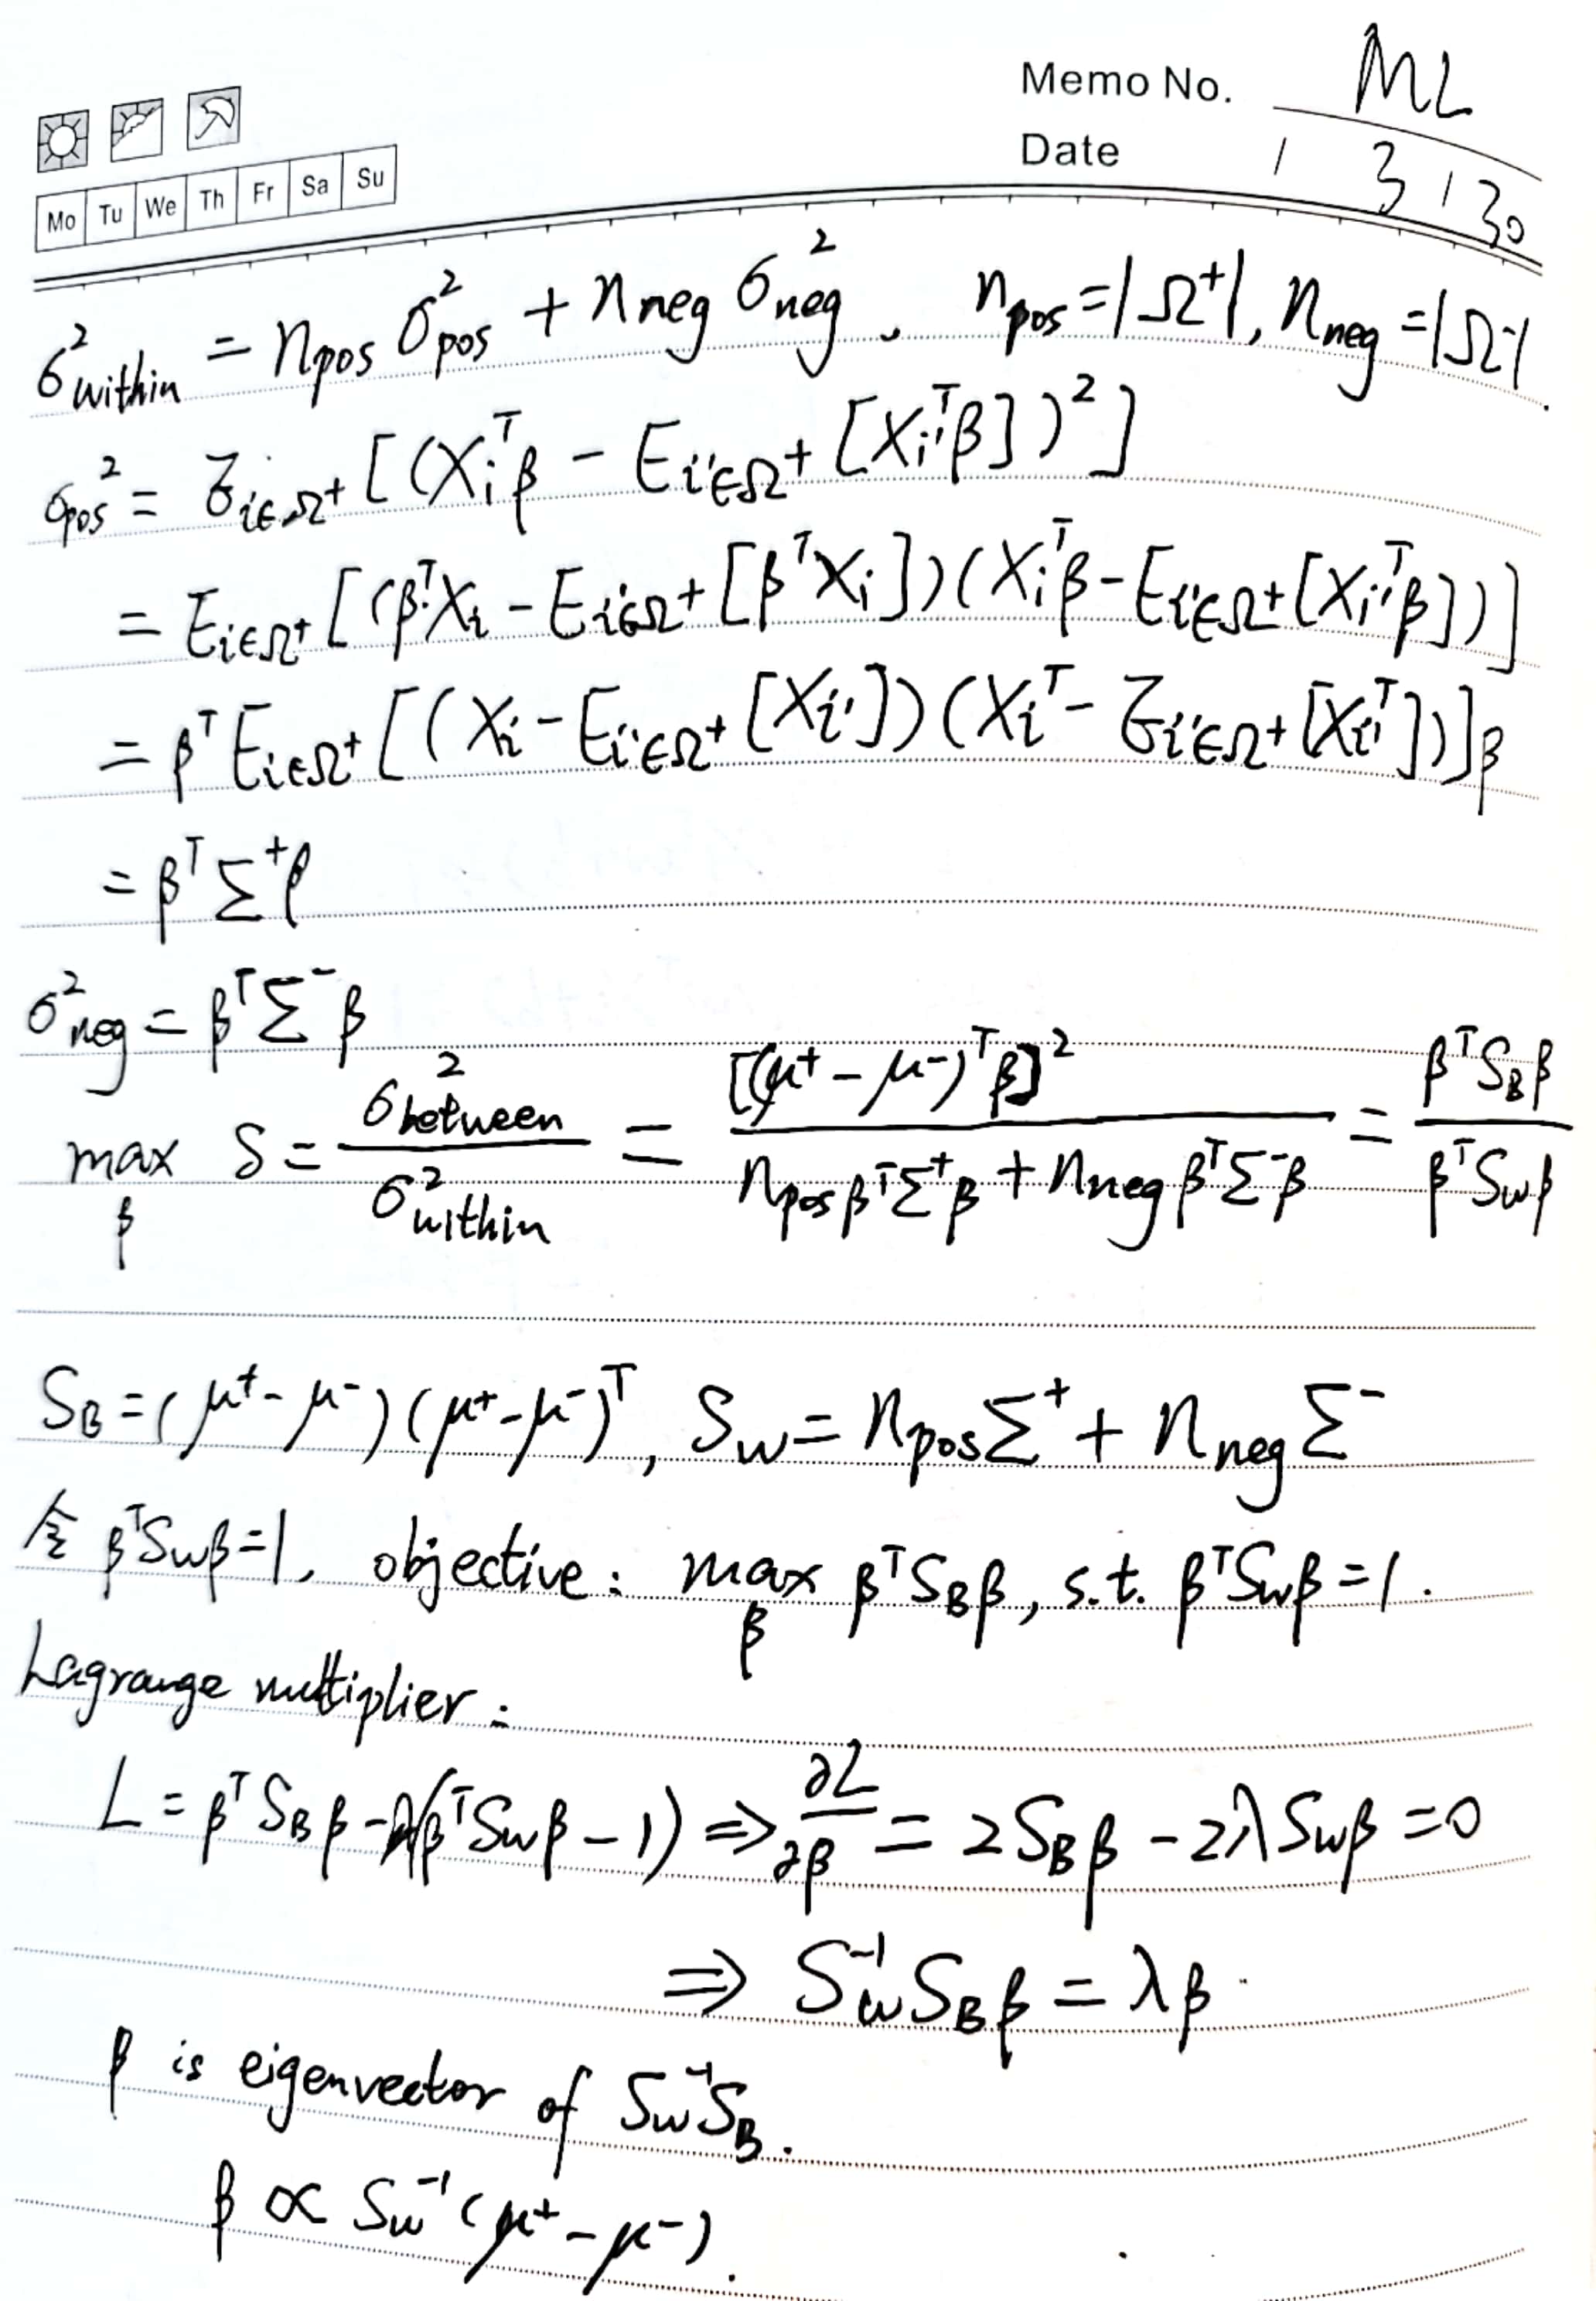 Memo No. ML
Date / 3 / 30
Mo Tu We Th Fr Sa Su
σ²within = npos σ²pos + nneg σ²neg, npos = |Ω⁺|, nneg = |Ω⁻|.
σpos² = E_{i∈Ω⁺}[(Xiᵀβ − E_{i'∈Ω⁺}[Xi'ᵀβ])²]
= E_{i∈Ω⁺}[(βᵀXi − E_{i'∈Ω⁺}[βᵀXi])(Xiᵀβ − E_{i'∈Ω⁺}[Xi'ᵀβ])]
= βᵀE_{i∈Ω⁺}[(Xi − E_{i'∈Ω⁺}[Xi'])(Xiᵀ − E_{i'∈Ω⁺}[Xi'ᵀ])]β
= βᵀΣ⁺β
σ²neg = βᵀΣ⁻β
max_β S = σ²between / σ²within = [(μ⁺ − μ⁻)ᵀβ]² / (npos βᵀΣ⁺β + nneg βᵀΣ⁻β) = βᵀS_Bβ / βᵀSwβ
S_B = (μ⁺ − μ⁻)(μ⁺ − μ⁻)ᵀ, Sw = nposΣ⁺ + nnegΣ⁻
令 βᵀSwβ = 1, objective: max_β βᵀS_Bβ, s.t. βᵀSwβ = 1.
Lagrange multiplier:
L = βᵀS_Bβ − λ(βᵀSwβ − 1) ⇒ ∂L/∂β = 2S_Bβ − 2λSwβ = 0
⇒ Sw⁻¹S_Bβ = λβ.
β is eigenvector of Sw⁻¹S_B.
β ∝ Sw⁻¹(μ⁺ − μ⁻).